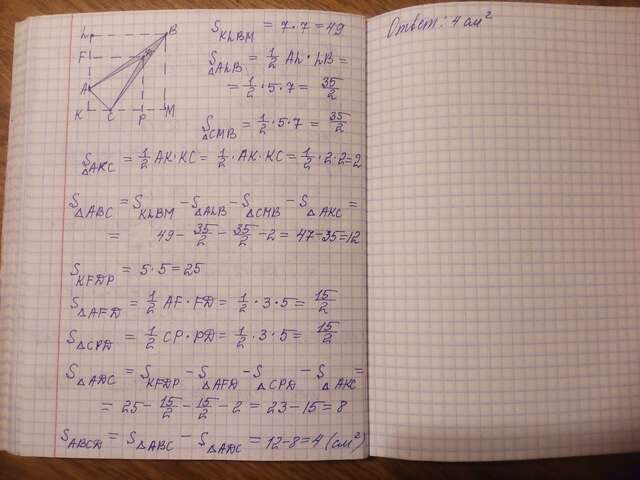 L B
F D
A
K C P M
S KLBM = 7·7 = 49
S△ALB = 1/2 AL·LB =
= 1/2·5·7 = 35/2
S△CMB = 1/2·5·7 = 35/2
S△AKC = 1/2 AK·KC = 1/2·AK·KC = 1/2·2·2=2
S△ABC = S KLBM - S△ALB - S△CMB - S△AKC =
= 49 - 35/2 - 35/2 - 2 = 47-35=12
S KFDP = 5·5=25
S△AFD = 1/2 AF·FD = 1/2·3·5 = 15/2
S△CPD = 1/2 CP·PD = 1/2·3·5 = 15/2
S△ADC = S KFDP - S△AFD - S△CPD - S△AKC =
= 25 - 15/2 - 15/2 - 2 = 23-15=8
S ABCD = S△ABC - S△ADC = 12-8=4 (см²)
Ответ: 4 см²